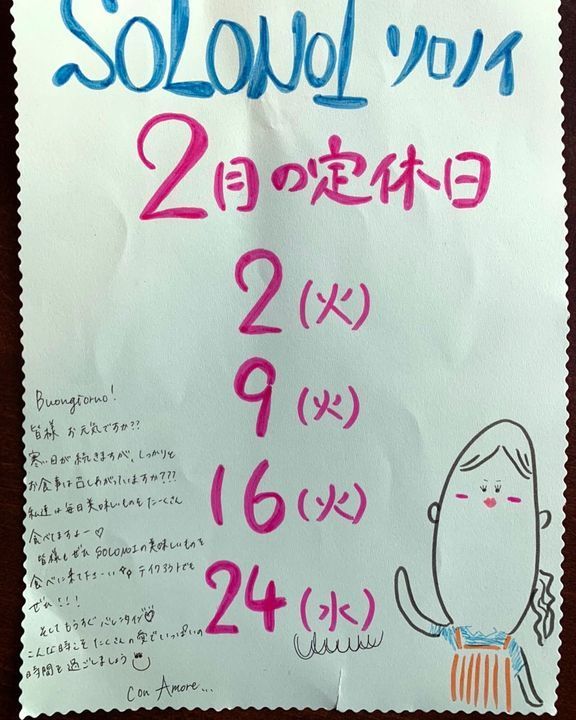 SOLONOI ソロノイ
2月の定休日
2(火)
9(火)
16(火)
24(水)
Buongiorno!
皆様 お元気ですか??
寒い日が続きますが、しっかりと
お食事は召しあがっていますか???
私達は毎日美味しいものをたーくさん
食べてますよー♡
皆様もぜひSOLONOIの美味しいものを
食べに来て下さーい テイクアウトでも
ぜひ!!!
そしてもうすぐバレンタイン♡
こんな時こそたくさんの愛でいっぱいの
時間を過ごしましょう
Con Amore...